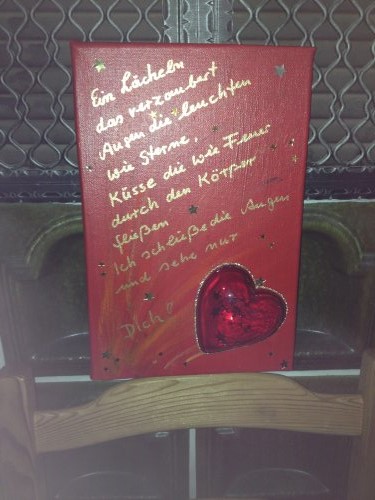 Ein Lächeln
das verzaubert
Augen die leuchten
wie Sterne,
Küsse die wie Feuer
durch den Körper
fließen
Ich schließe die Augen
und sehe nur
Dich!